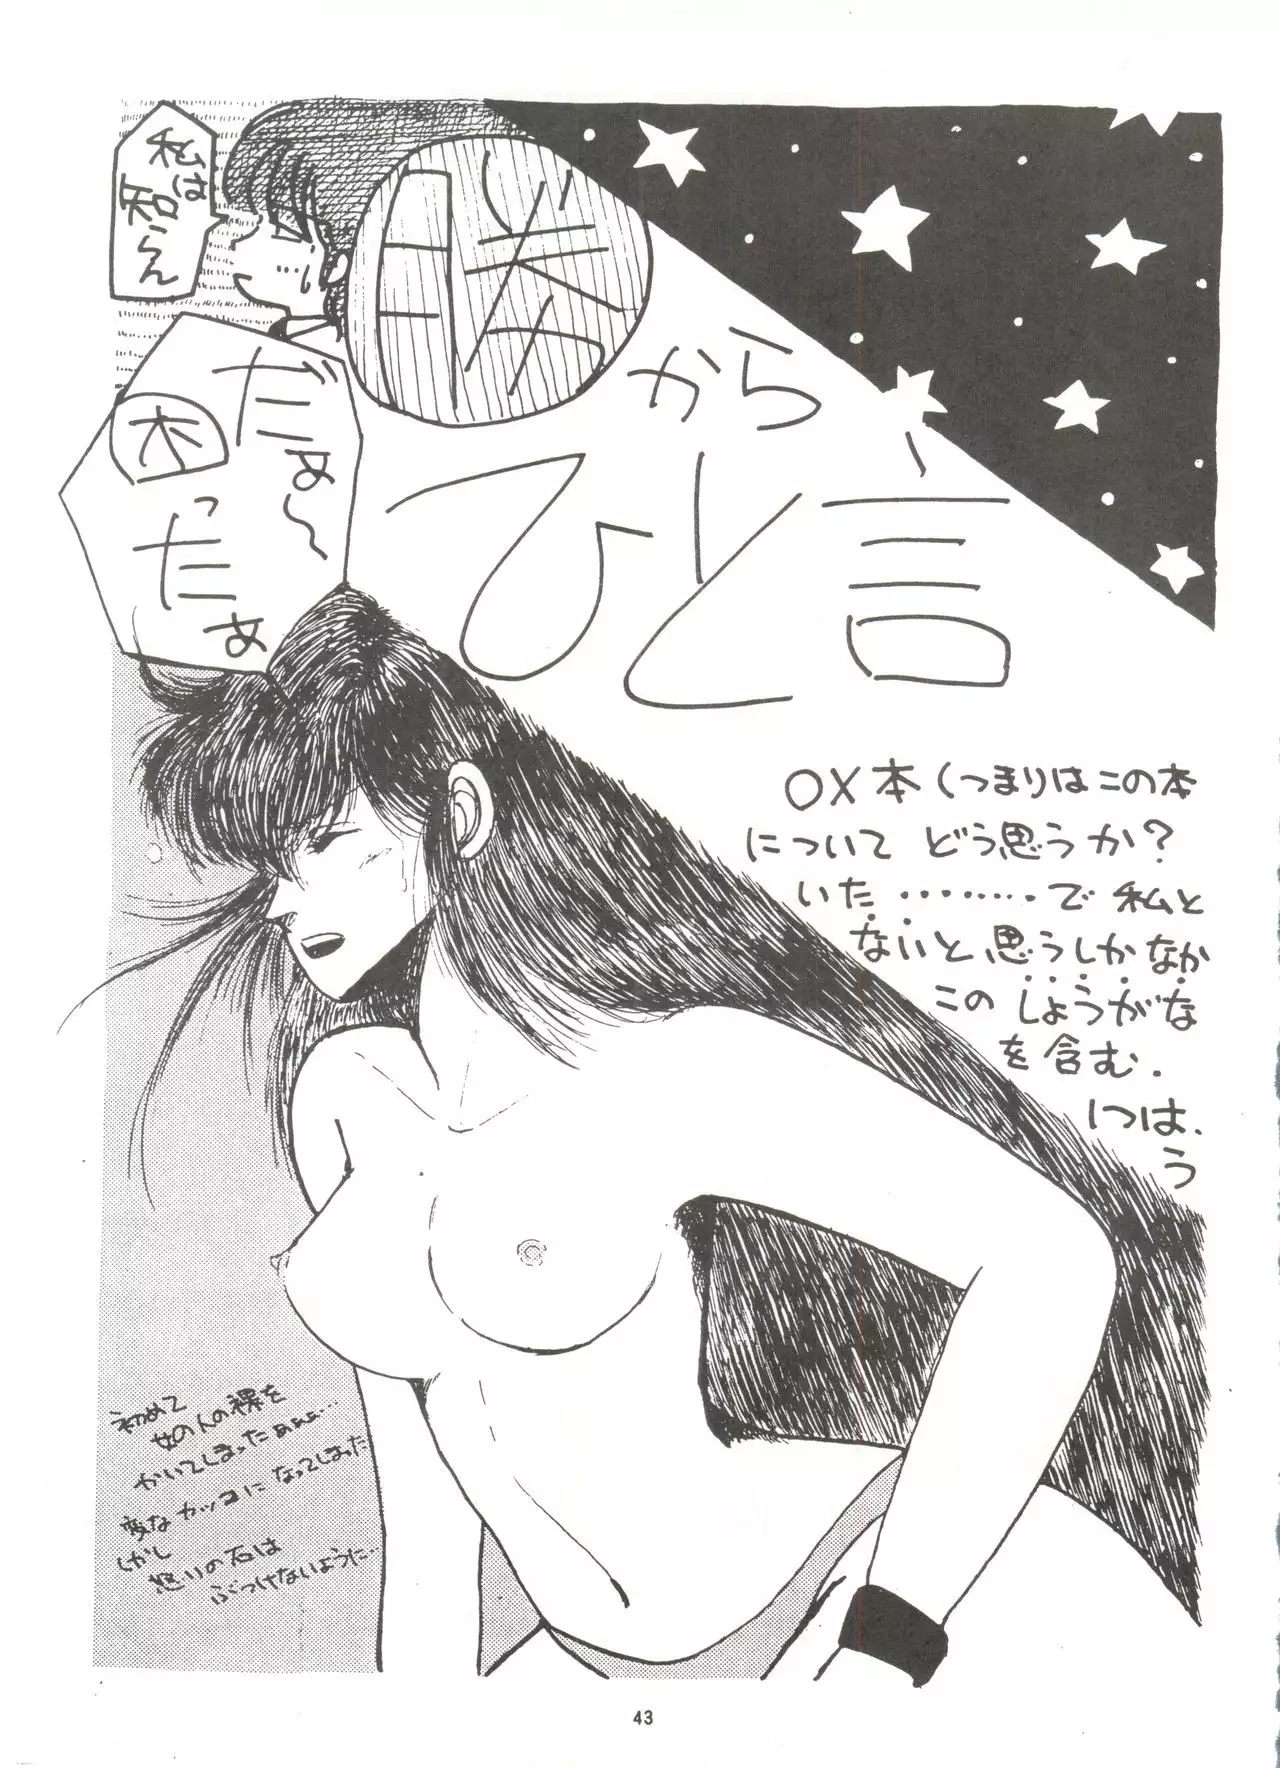 私は
知らん
朕から
ひと言
だぁ〜
困ったぁ
OX本(つまりはこの本
について どう思うか?
いた・・・・・・・・で 私と
ないと思うしかなか
この しょうがな
を含む.
1つは、
う
初めて
女の人の裸を
かいてしまったぁぁぁ…
変な カッコに なってしまった
しかし
怒りの石は
ぶつけないように…
43